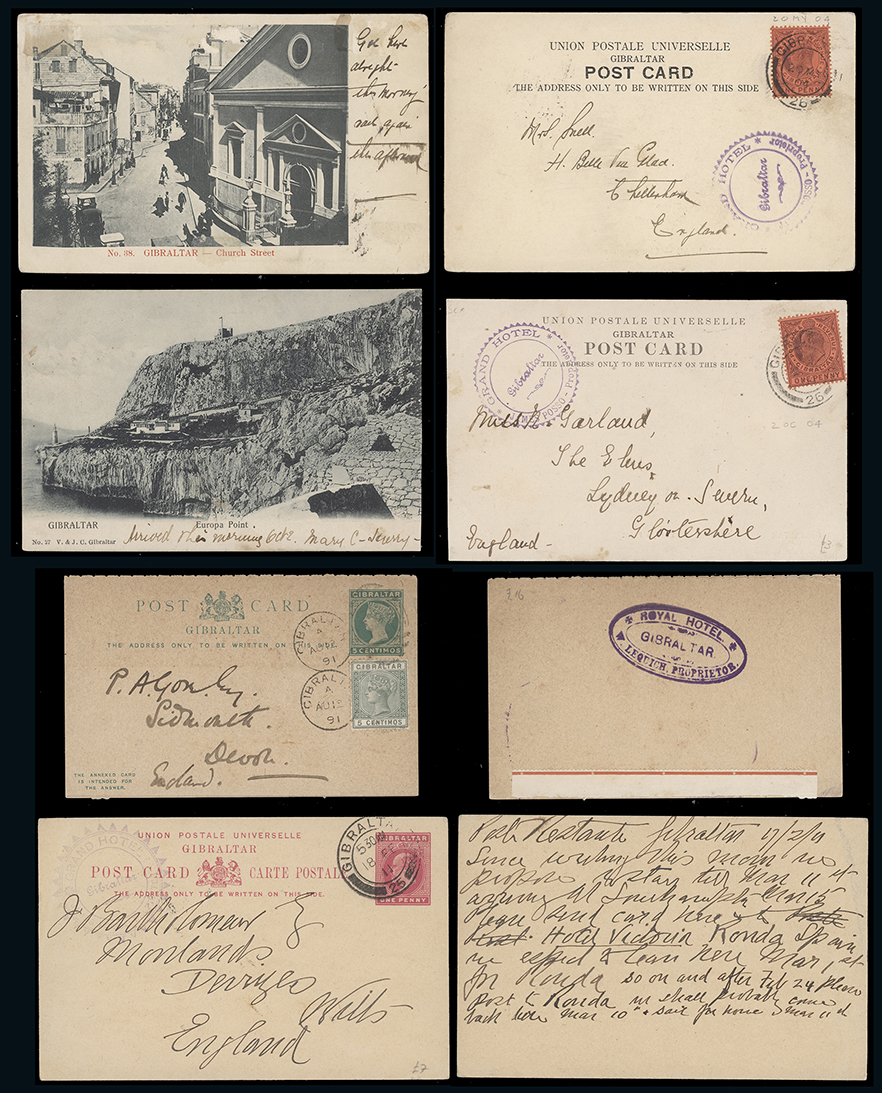 Got here
alright
this morning
sail again
this afternoon
No. 38. GIBRALTAR — Church Street
20 MY 04
UNION POSTALE UNIVERSELLE
GIBRALTAR
POST CARD
THE ADDRESS ONLY TO BE WRITTEN ON THIS SIDE
GIBRALTAR
26
Mrs. Snell
Cheltenham
England.
GRAND HOTEL * Proprietor
Gibraltar
GIBRALTAR
Europa Point.
No. 27 V. & J. C. Gibraltar
Arrived this morning Oct 2. Mary C-
UNION POSTALE UNIVERSELLE
GIBRALTAR
POST CARD
THE ADDRESS ONLY TO BE WRITTEN ON THIS SIDE
ONE PENNY
26
2 OC 04
GRAND HOTEL * JAMES POSSO - Proprietor
Gibraltar
Miss Garland,
The Elms,
Lydney on Severn,
Glostershire
England -
£3
POST CARD
GIBRALTAR
THE ADDRESS ONLY TO BE WRITTEN ON THIS SIDE
GIBRALTAR
5 CENTIMOS
GIBRALTAR
A
91
GIBRALTAR
5 CENTIMOS
GIBRALTAR
A
AU 12
91
Sidmouth
Devon.
England.
THE ANNEXED CARD
IS INTENDED FOR
THE ANSWER.
£16
ROYAL HOTEL.
GIBRALTAR
W LEQUICH, PROPRIETOR.
UNION POSTALE UNIVERSELLE
GIBRALTAR
POST CARD CARTE POSTALE
THE ADDRESS ONLY TO BE WRITTEN ON THIS SIDE.
GRAND HOTEL
Gibraltar
GIBRALTAR
5 30 PM
18
11
26
GIBRALTAR
ONE PENNY
Bartholomew
Monlands
Devizes
Wilts
England
£7
Poste Restante Gibraltar 17/2/11
Since writing this morn we
propose to stay till Mar 11 &
arriving at Southampton Mar 15
Please send card here
Hotel Victoria Ronda Spain
we expect to leave here Mar 1st
for Ronda so on and after Feb 24 please
post to Ronda we shall probably come
back here Mar 10th & sail for home Mar 11th